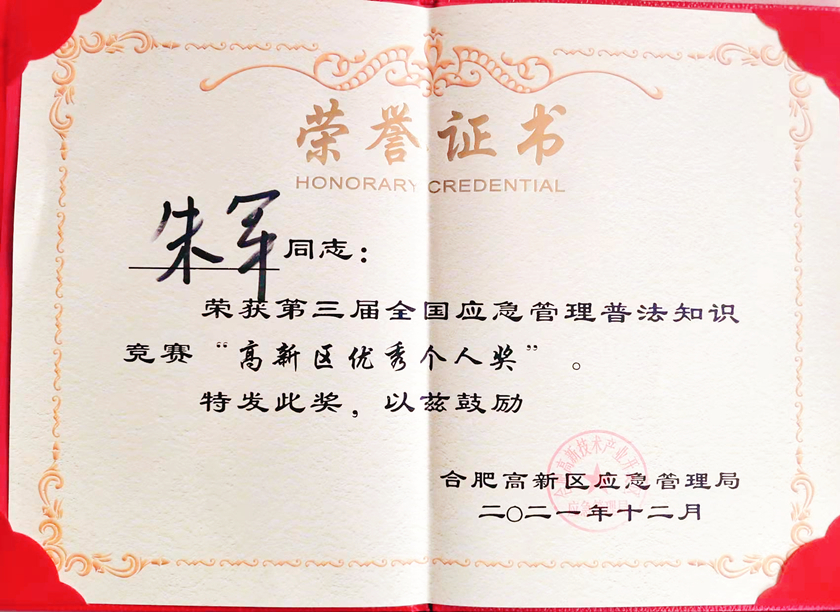 荣誉证书
HONORARY CREDENTIAL
朱军同志：
荣获第三届全国应急管理普法知识
竞赛“高新区优秀个人奖”。
特发此奖，以兹鼓励
合肥高新区应急管理局
二〇二一年十二月
高新技术产业开
应急管理局